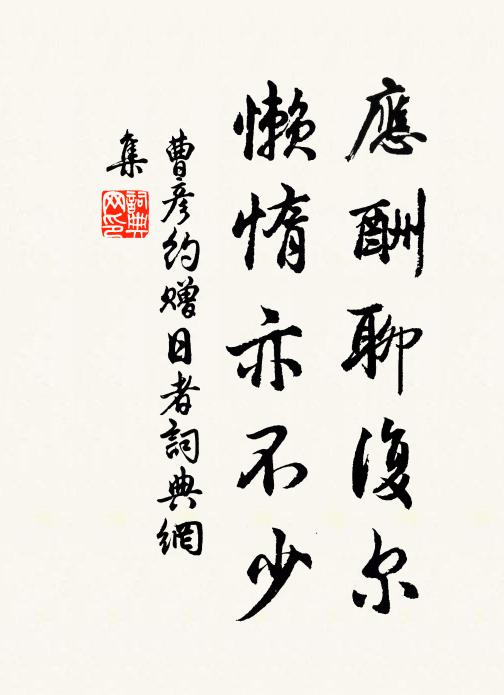 應酬聊復尔
懶惰亦不少
曹彥約贈日者詞典網
集
詞典网印